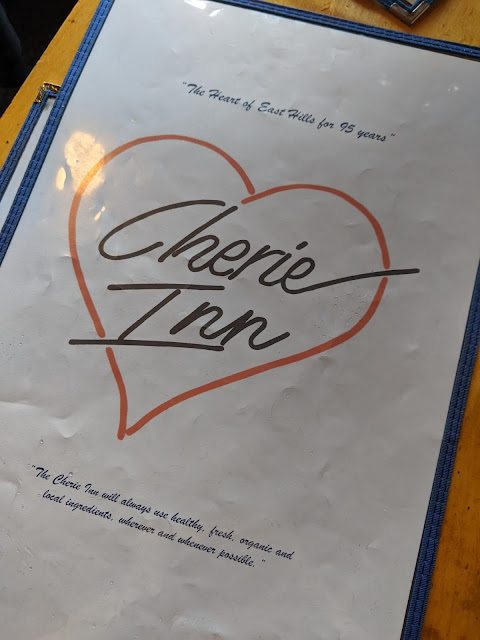 "The Heart of East Hills for 95 years"
Cherie
Inn
"The Cherie Inn will always use healthy, fresh, organic and
local ingredients, wherever and whenever possible."